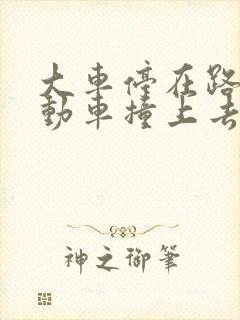 大車停在路
動車撞上去
神之御筆